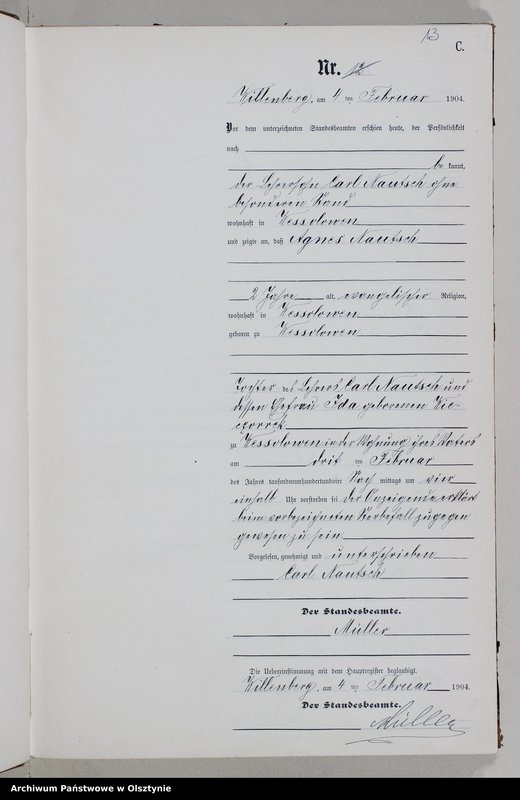 13
C.
Nr. 12
Willenberg, am 4 ten Februar 1904.
Vor dem unterzeichneten Standesbeamten erschien heute, der Persönlichkeit
nach
be kannt,
der Lehrersohn Carl Nautsch ohne
besonderen Stand
wohnhaft in Wessolowen
und zeigte an, daß Agnes Nautsch
2 Jahre alt, evangelischer Religion,
wohnhaft in Wessolowen
geboren zu Wessolowen
Tochter des Lehrers Carl Nautsch und
dessen Ehefrau Ida geborenen Wie-
czorrek
zu Wessolowen in der Wohnung ihres Vaters
am drit ten Februar
des Jahres tausendneunhundertundvier Nach mittags um vier
einhalb Uhr verstorben sei der Anzeigende erklärt
beim vorbezeichneten Sterbefall zugegen
gewesen zu sein
Vorgelesen, genehmigt und unterschrieben
Carl Nautsch
Der Standesbeamte.
Müller
Die Uebereinstimmung mit dem Hauptregister beglaubigt.
Willenberg, am 4 ten Februar 1904.
Der Standesbeamte.
Müller
Archiwum Państwowe w Olsztynie